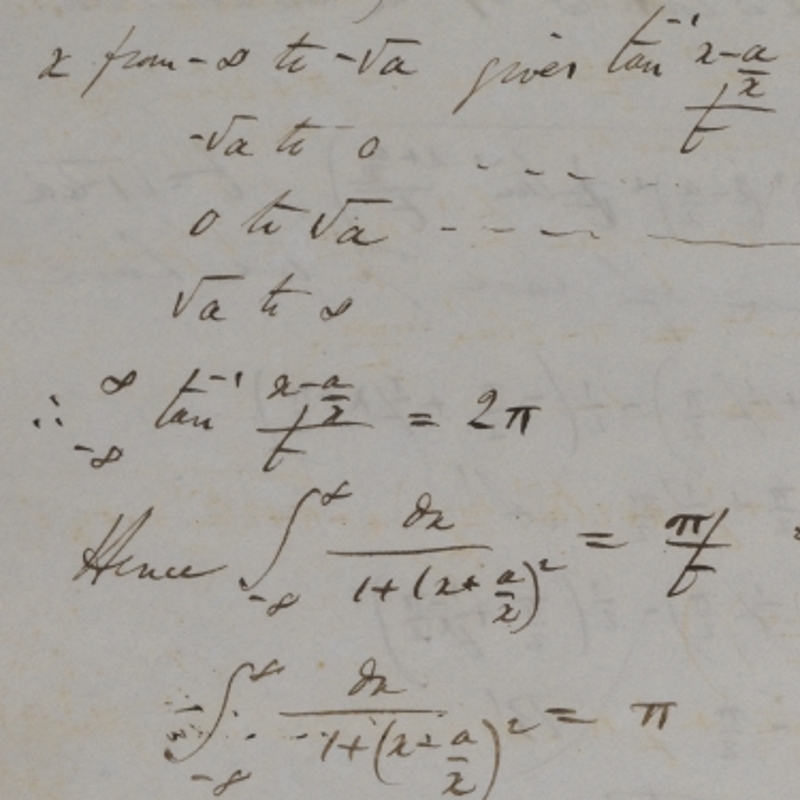 x from -∞ to -√a gives tan⁻¹ (x-a/x)/t
-√a to 0 - - - -
0 to √a - - - - -
√a to ∞
∴ ∞ -∞ tan⁻¹ (x-a/x)/t = 2π
Hence ∫_{-∞}^{∞} dx/(1+(x+a/x)²) = π/t
∫_{-∞}^{∞} dx/(1+(x-a/x)²) = π